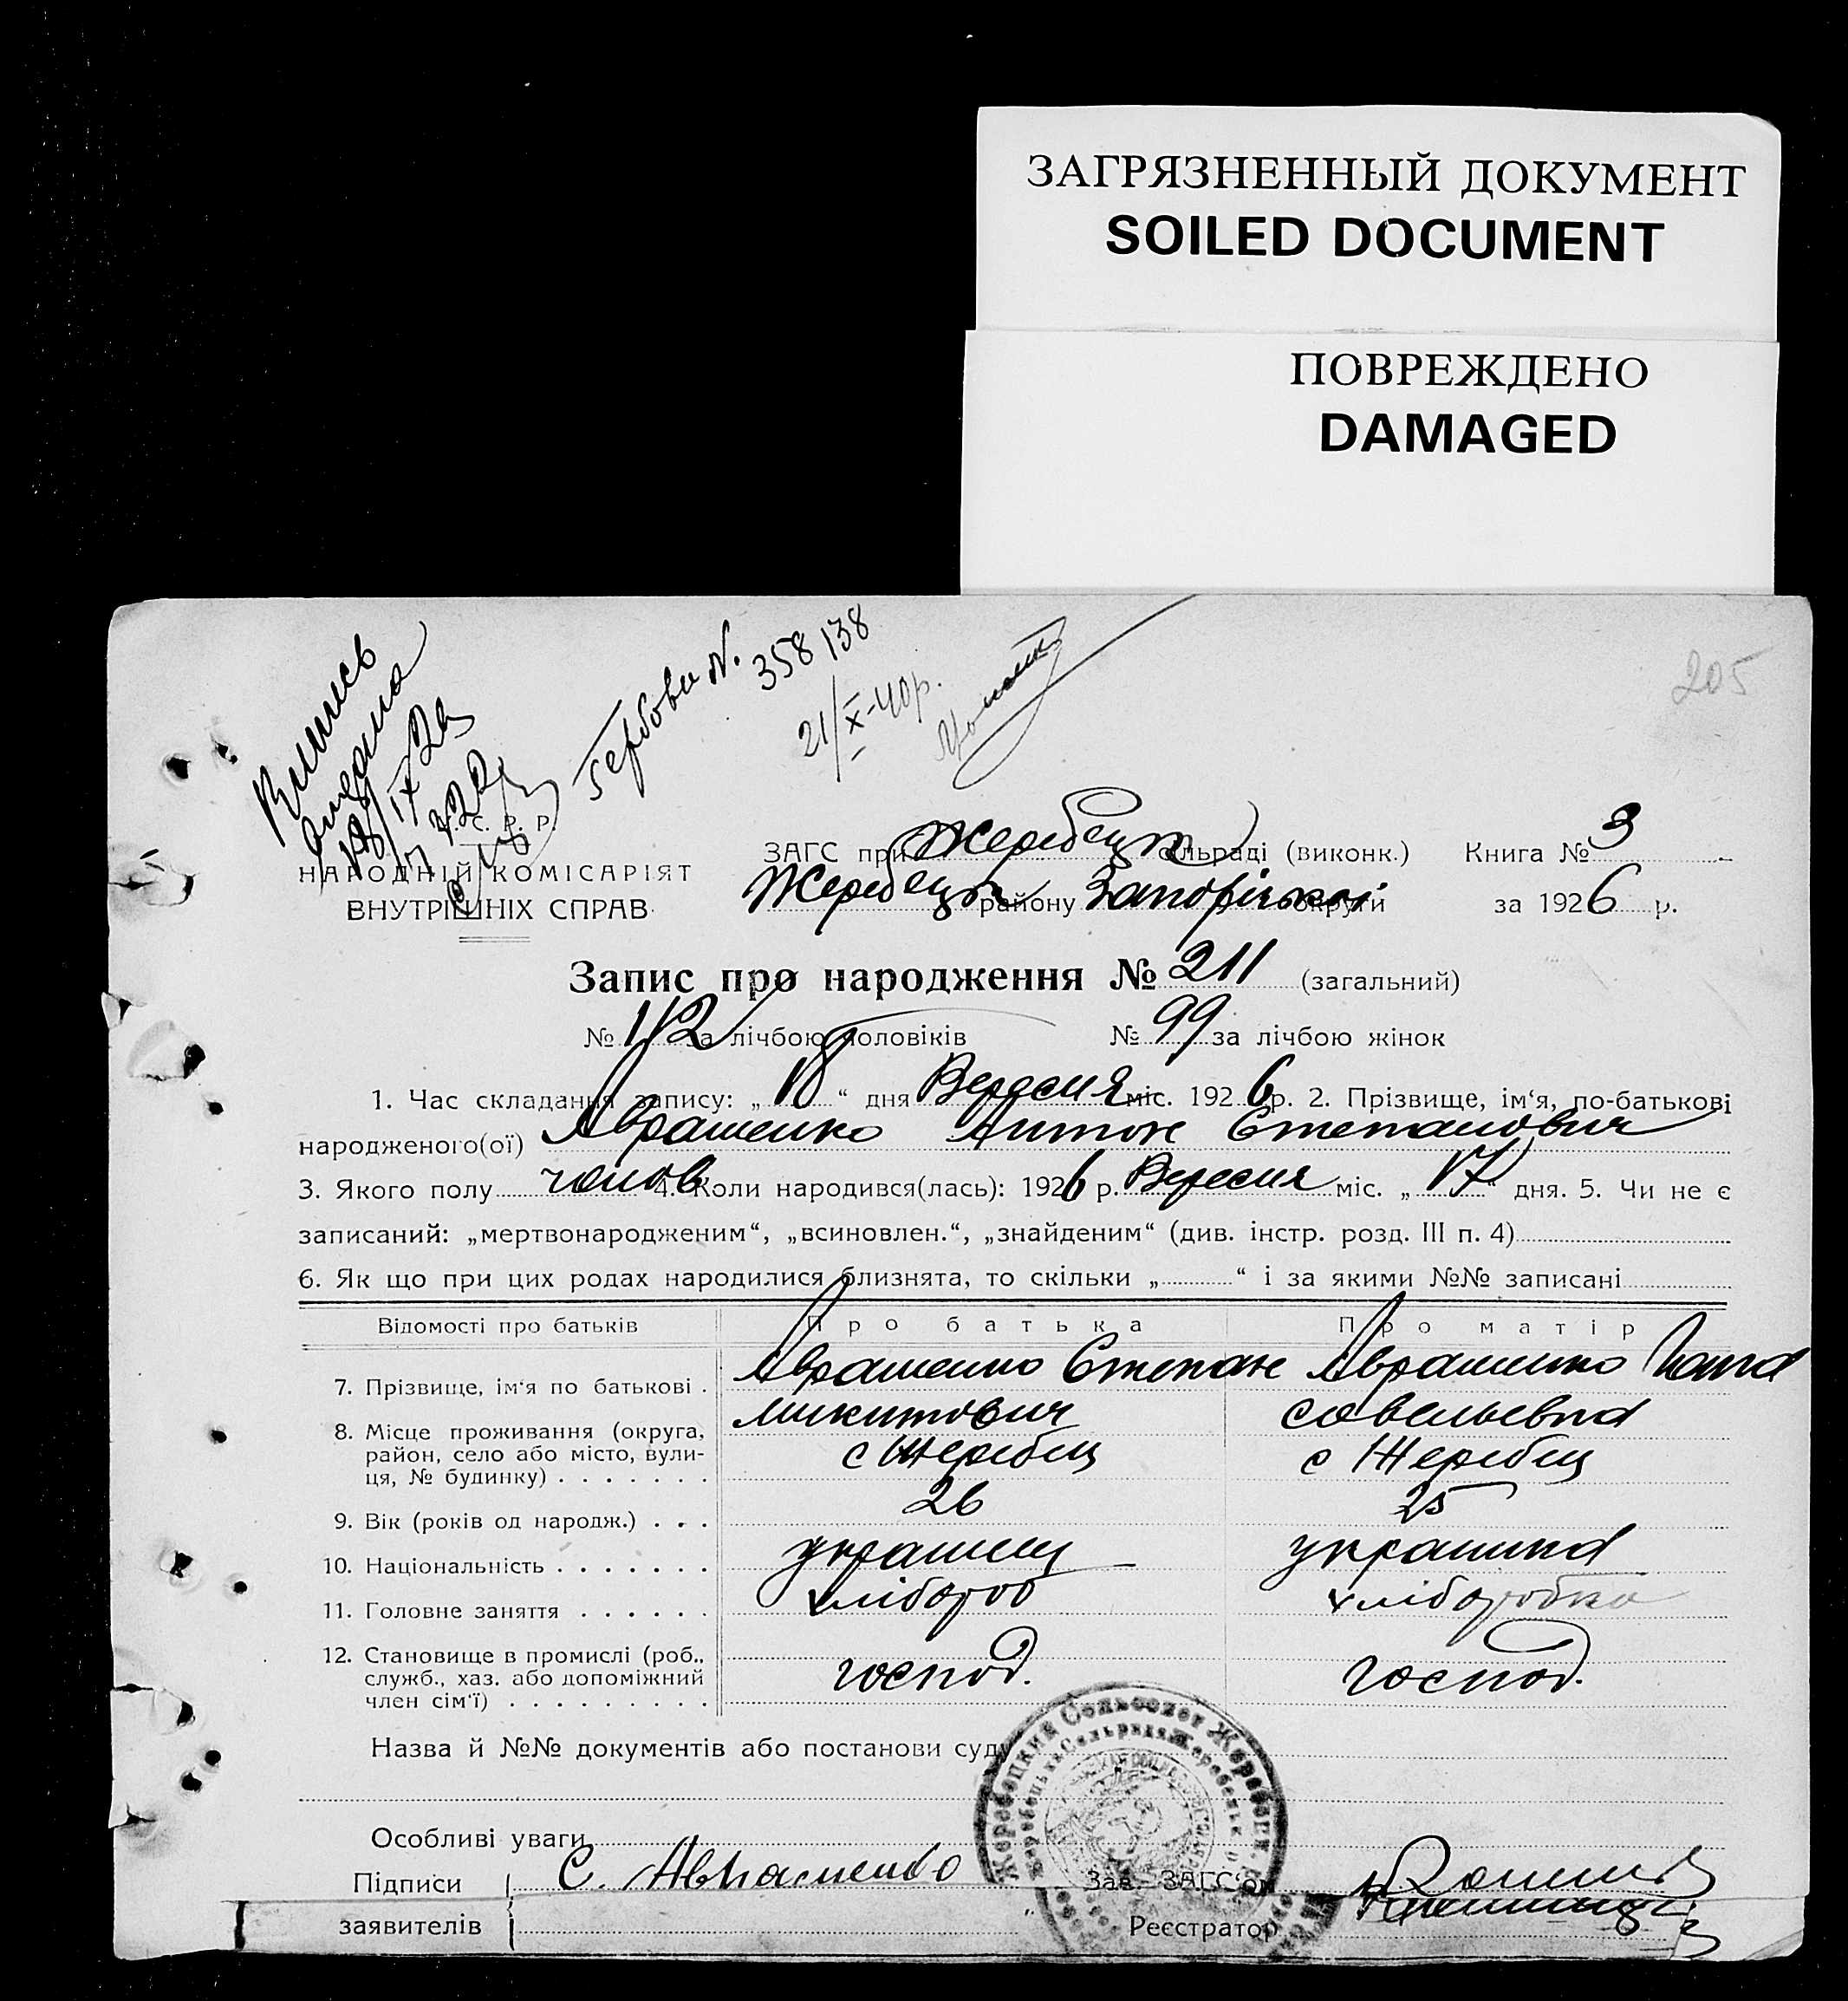 ЗАГРЯЗНЕННЫЙ ДОКУМЕНТ
SOILED DOCUMENT
ПОВРЕЖДЕНО
DAMAGED
205
Випись
Гербови N. 358138
21/X-40р.
С. Р. Р.
НАРОДНІЙ КОМІСАРІЯТ
ВНУТРІШНІХ СПРАВ
ЗАГС при Жеребецьк сільраді (виконк.) Книга № 3
Жеребецьк району Запорізької округи за 1926 р.
Запис про народження № 211 (загальний)
№ 112 за лічбою чоловіків № 99 за лічбою жінок
1. Час складання запису: „ 18 “ дня Вересня міс. 1926 р. 2. Прізвище, ім‘я, по-батькові
народженого(ої) Аврашенко Антон Степанович
3. Якого полу чолов 4. Коли народився(лась): 1926 р. Вересня міс. „ 17 “ дня. 5. Чи не є
записаний: „мертвонародженим“, „всиновлен.“, „знайденим“ (див. інстр. розд. III п. 4)
6. Як що при цих родах народилися близнята, то скільки „ “ і за якими №№ записані
Відомості про батьків Про батька Про матір
7. Прізвище, ім‘я по батькові . Аврашенко Степан Аврашенко
Микитович Савельевна
8. Місце проживання (округа, район, село або місто, вули-ця, № будинку) . . . . . . . с Жеребец с Жеребец
9. Вік (років од народж.) . . . 26 25
10. Національність . . . . . . . українец українка
11. Головне заняття . . . . . . хлібороб хліборобка
12. Становище в промислі (роб., служб., хаз. або допоміжний член сім‘ї) . . . . . . . . . господ. господ.
Назва й №№ документів або постанови суду
Особливі уваги
Підписи С. Авраменко Зав. ЗАГС‘ом
заявителів „ Реєстратор
Жеребецкий Сельсовет Жеребецк.